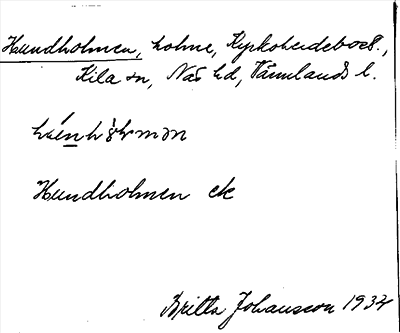 Hundholmen, holme, Kyrkoherdebost.,
Kila sn, Näs hd, Värmlands l.
Hundholmen ek
Britta Johansson 1934